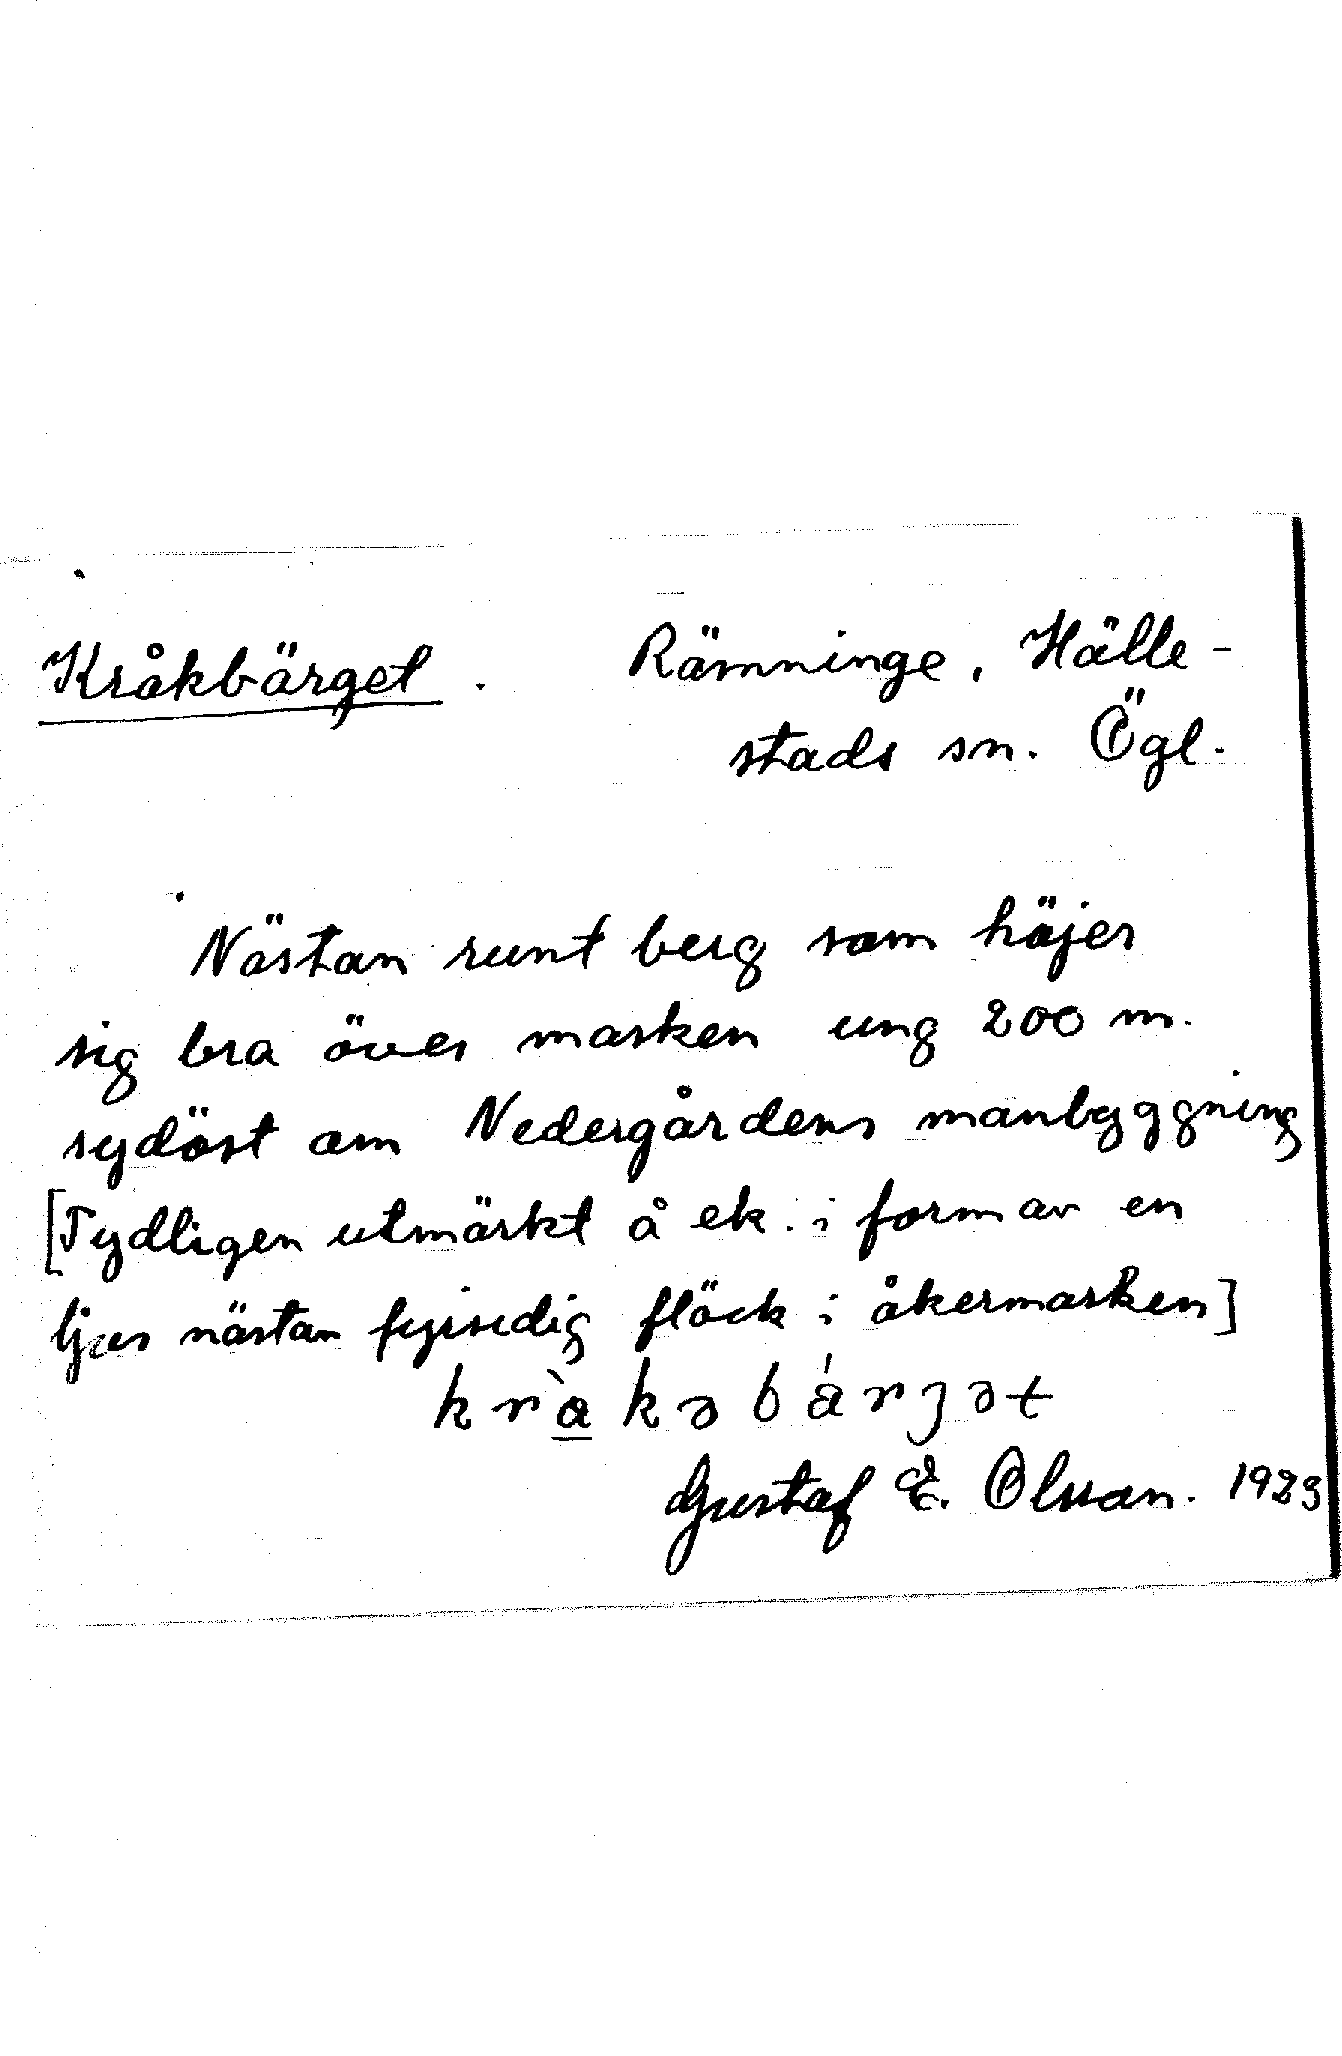 Kråkbärget. Rämninge, Hälle-
stads sn. Ögl.
Nästan runt berg som höjer
sig bra över marken ung 200 m.
sydöst om Nedergårdens manbyggning
[Tydligen utmärkt å ek. i form av en
ljus nästan fyrsidig fläck i åkermarken]
Gustaf E. Olsson. 1929